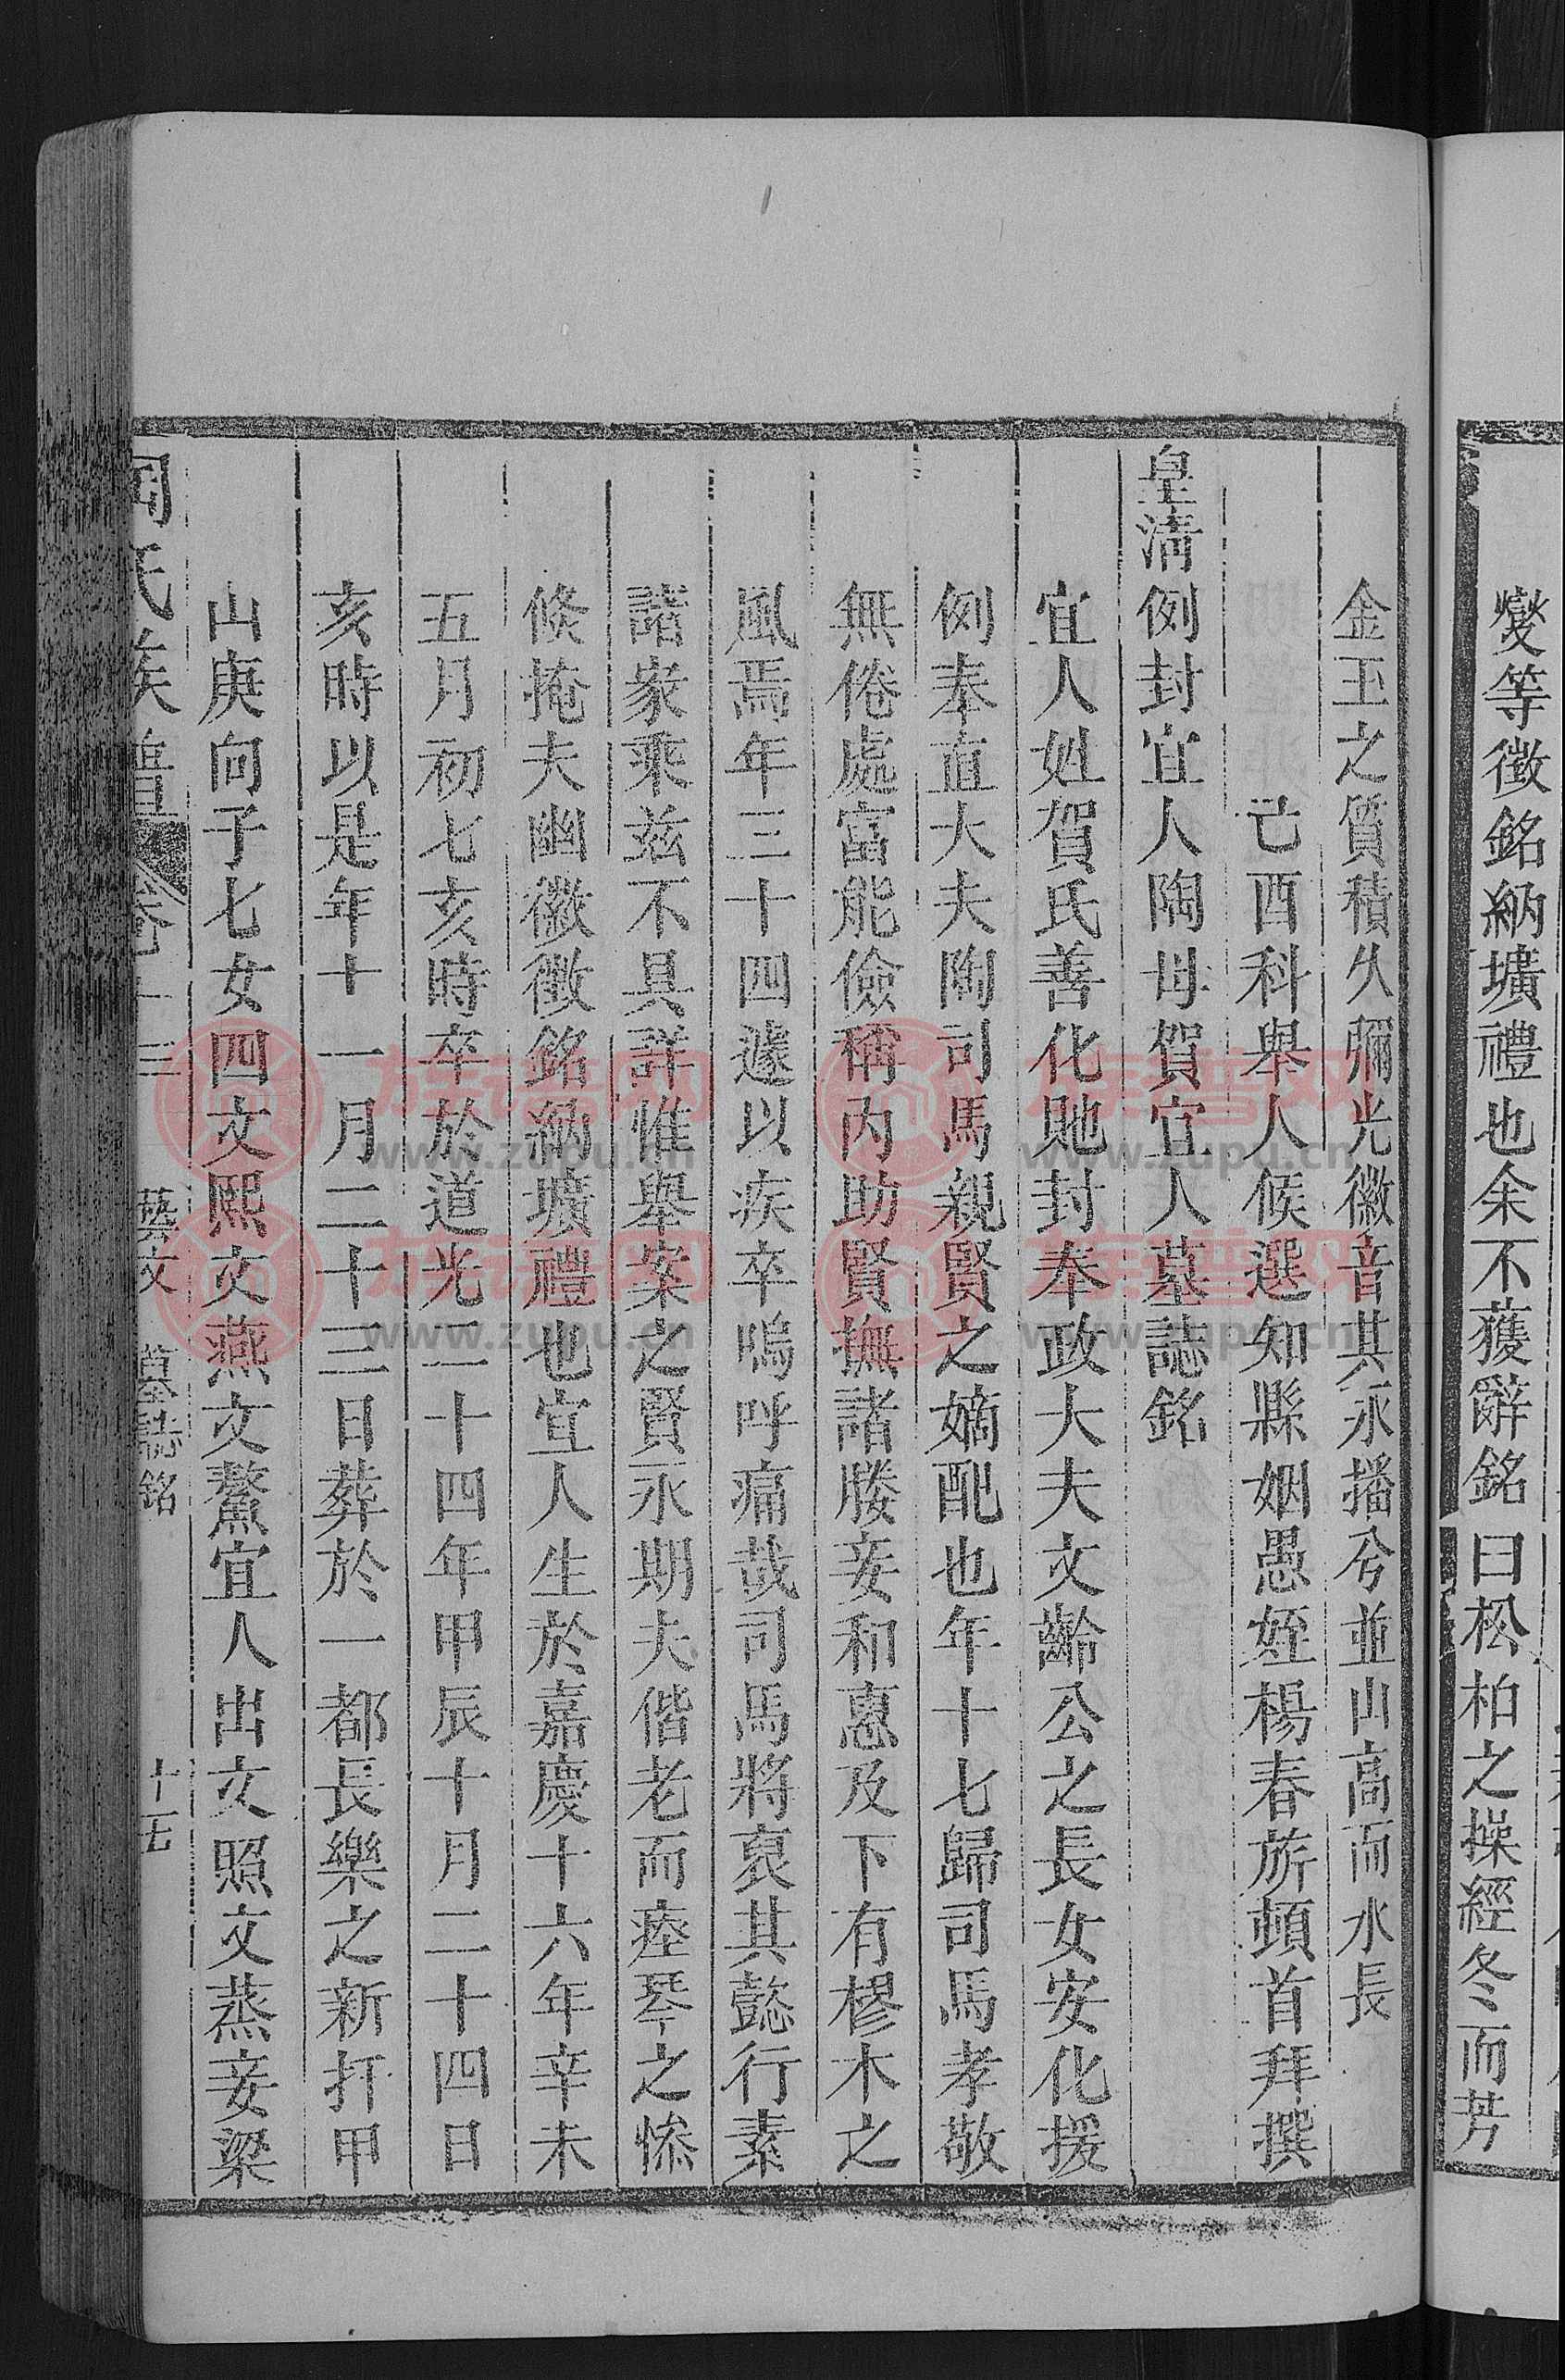 燮等徵銘納壙禮也余不獲辭銘曰松柏之操經冬而芳
金玉之質積久彌光徽音其永播兮並山高而水長
己酉科舉人候選知縣姻愚姪楊春旂頓首拜撰
皇淸例封宜人陶母賀宜人墓誌銘
宜人姓賀氏善化貤封奉政大夫文齡公之長女安化援
例奉直大夫陶司馬親賢之嫡配也年十七歸司馬孝敬
無倦處富能儉稱內助賢撫諸媵妾和惠及下有樛木之
風焉年三十四遽以疾卒嗚呼痛哉司馬將裒其懿行素
諸家乘茲不具詳惟舉案之賢永期夫偕老而瘞琴之慘
倐掩夫幽徽徵銘納壙禮也宜人生於嘉慶十六年辛未
五月初七亥時卒於道光二十四年甲辰十月二十四日
亥時以是年十一月二十三日葬於一都長樂之新打甲
山庚向子七女四文熙文燕文鰲宜人出文照文蒸妾梁
氏族 卷十三 藝文 墓誌銘 十七
族譜网
www.zupu.cn
族譜网
www.zupu.cn
族譜网
www.zupu.cn
族譜网
www.zupu.cn